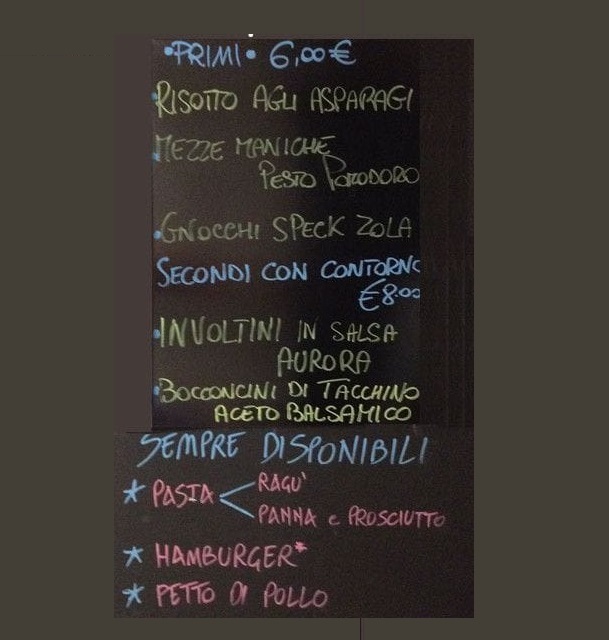 •PRIMI• 6,00€
•RISOTTO AGLI ASPARAGI
•MEZZE MANICHE
PESTO POMODORO
•GNOCCHI SPECK ZOLA
SECONDI CON CONTORNO
€8.00
•INVOLTINI IN SALSA
AURORA
•BOCCONCINI DI TACCHINO
ACETO BALSAMICO
SEMPRE DISPONIBILI
* PASTA < RAGU'
PANNA e PROSCIUTTO
* HAMBURGER*
* PETTO DI POLLO